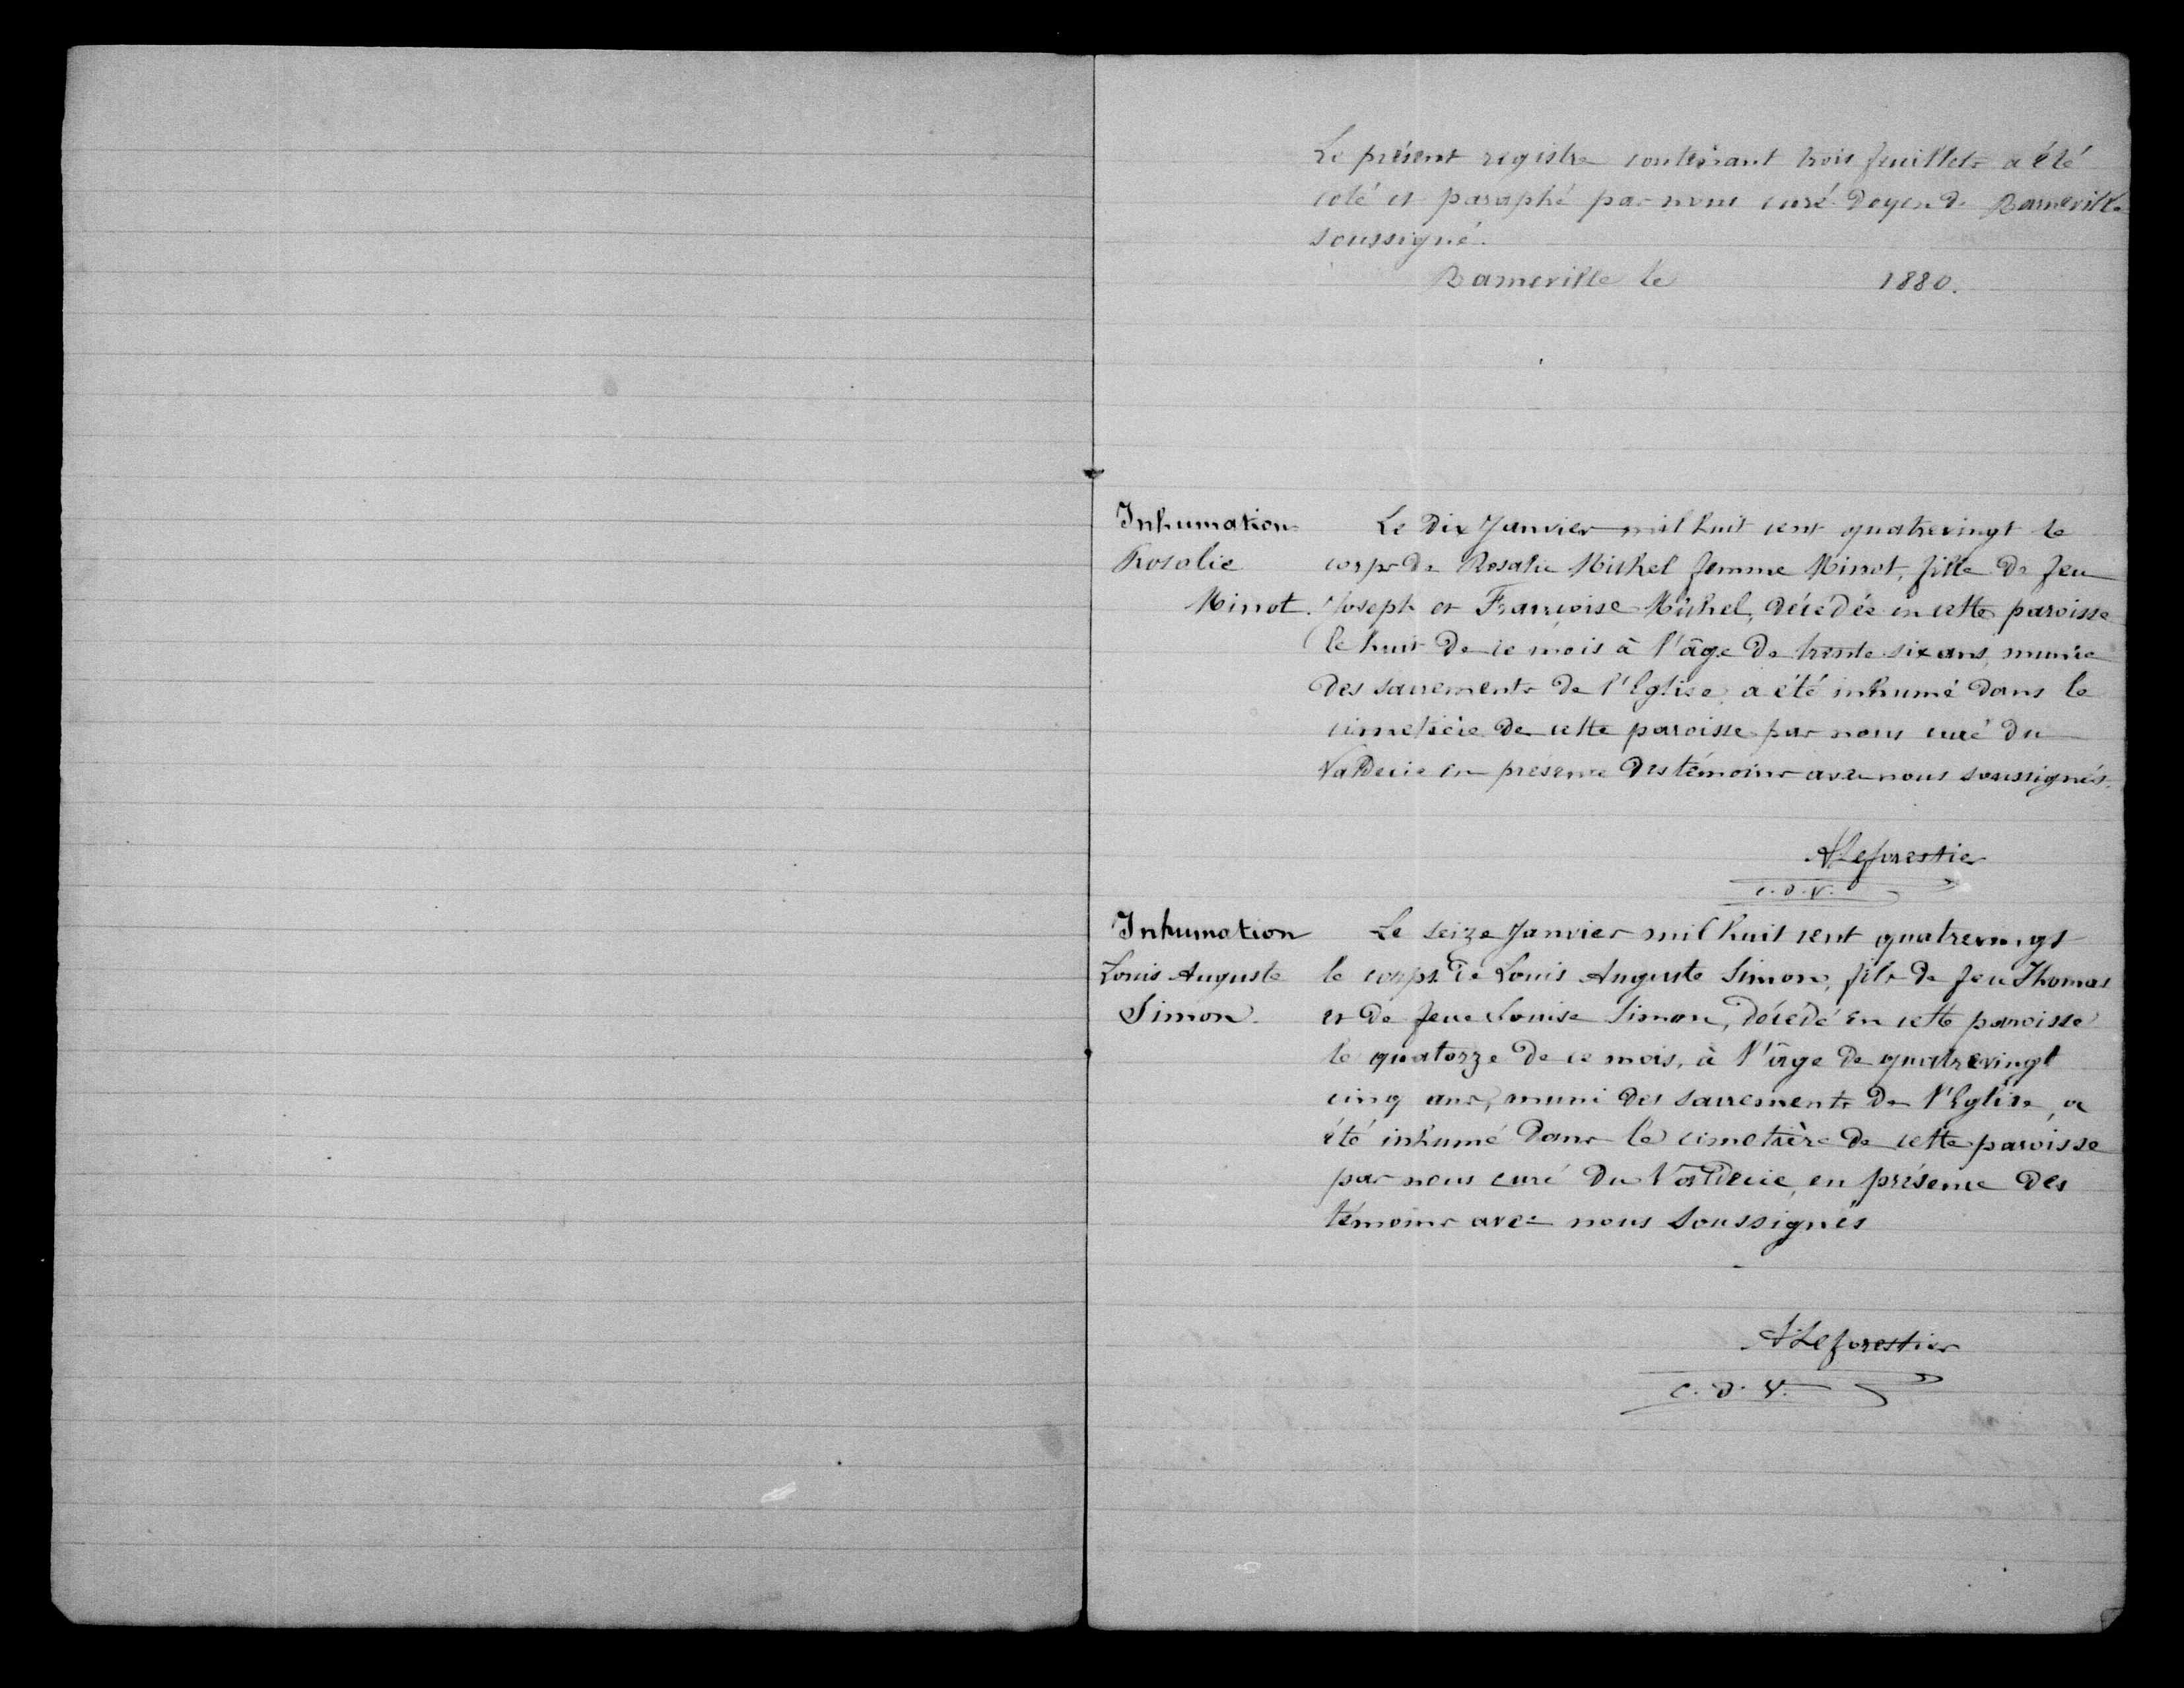 Le présent registre contenant trois feuillets a été
coté et paraphé par nous curé doyen de Barneville
soussigné.
Barneville le 1880.
Inhumation
Rosalie
Minot.
Le dix Janvier mil huit cent quatrevingt le
corps de Rosalie Michel femme Minot, fille de feu
Joseph et Françoise Michel, décédée en cette paroisse
le huit de ce mois à l'âge de trente six ans, munie
des sacrements de l'Eglise, a été inhumé dans le
cimetière de cette paroisse par nous curé du
Valdecie en présence des témoins avec nous soussignés.
A Leforestier
c. d. V.
Inhumation
Louis Auguste
Simon.
Le seize Janvier mil huit cent quatrevingt
le corps de Louis Auguste Simon, fils de feu Thomas
et de feue Louise Simon, décédé en cette paroisse
le quatorze de ce mois, à l'âge de quatrevingt
cinq ans, muni des sacrements de l'Eglise, a
été inhumé dans le cimetière de cette paroisse
par nous curé du Valdecie, en présence des
témoins avec nous soussignés
A Leforestier
c. d. V.